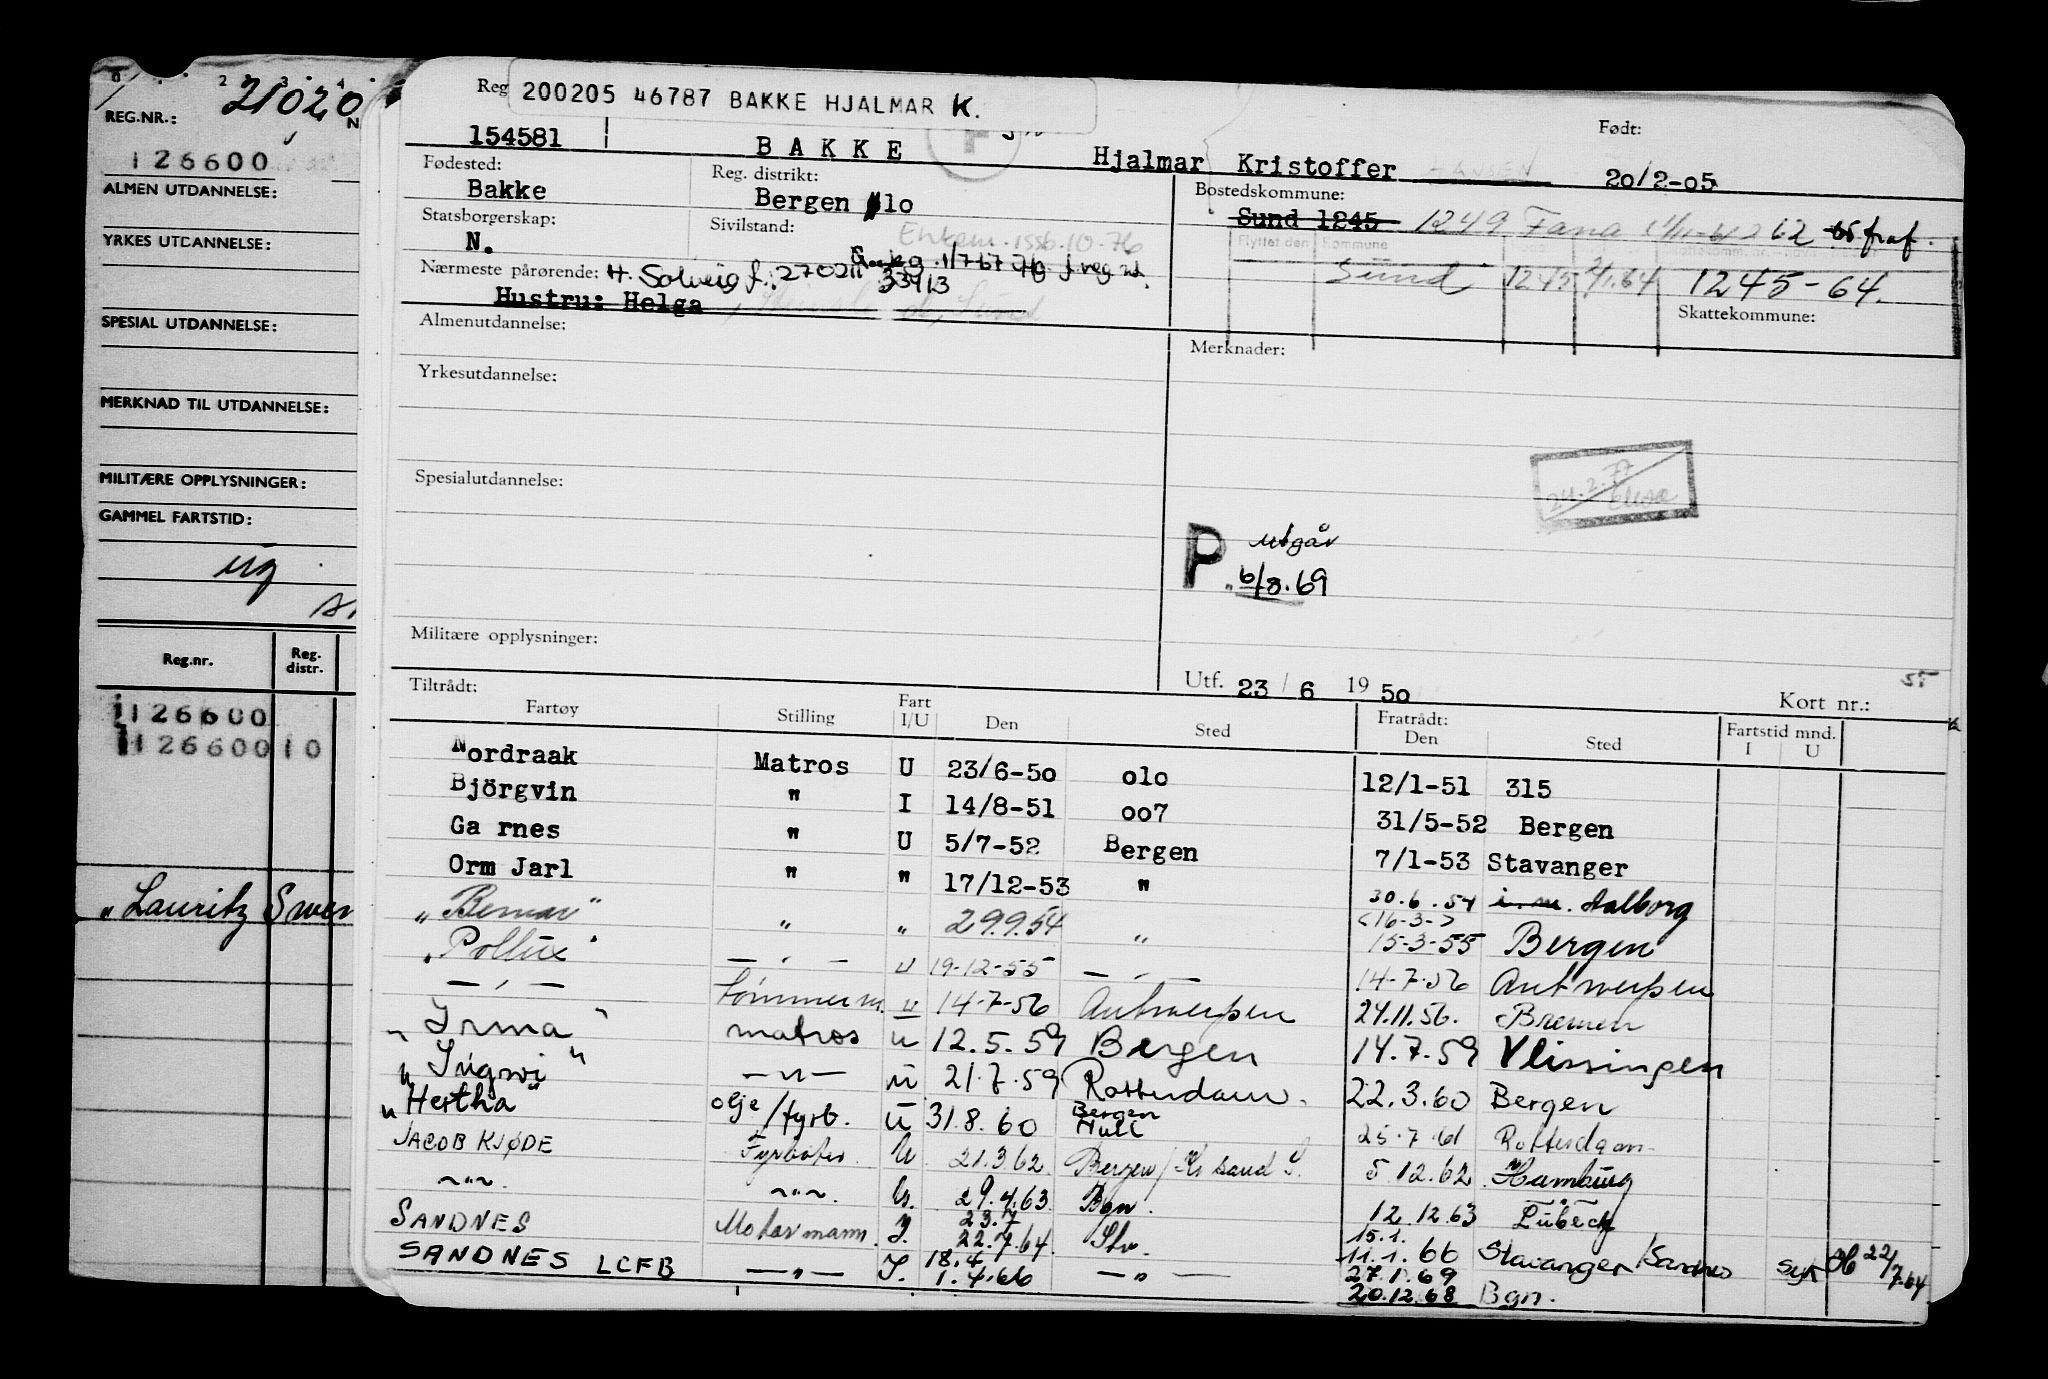 21020
REG.NR.:
N
126600
ALMEN UTDANNELSE:
YRKES UTDANNELSE:
SPESIAL UTDANNELSE:
MERKNAD TIL UTDANNELSE:
MILITÆRE OPPLYSNINGER:
GAMMEL FARTSTID:
ug
Reg.nr. Reg. distr.
126600
126600 10
"Lauritz Swen
Reg
200205 46787 BAKKE HJALMAR K.
Født:
154581 BAKKE Hjalmar Kristoffer HANSEN 20/2-05
Fødested: Reg. distrikt: Bostedskommune:
Bakke Bergen 010 Sund 1245 1249 Fana 62 fraf.
Statsborgerskap: Sivilstand: Flyttet den Kommune
N. Enkem. 10-76
Sund 1245 2/1.64 1245-64.
Nærmeste pårørende: H. Solveig f. 270211 33913
Hustru: Helga
Skattekommune:
Almenutdannelse: Merknader:
Yrkesutdannelse:
Spesialutdannelse:
24.2.77
P utgår
6/8.69
Militære opplysninger:
Utf. 23/6 1950 Kort nr.:
Tiltrådt: Fratrådt:
Fartøy Stilling Fart I/U Den Sted Den Sted Fartstid mnd. I U
Nordraak Matros U 23/6-50 010 12/1-51 315
Björgvin " I 14/8-51 007 31/5-52 Bergen
Ga rnes " U 5/7-52 Bergen 7/1-53 Stavanger
Orm Jarl " " 17/12-53 " 30.6.54 Aalborg
"Bemar" " " 29.9.54 " <16-3-> 15-3-55 Bergen
"Pollux" — " — U 19-12-55 — " — 14-7-56 Antwerpen
— " — tømmerm. U 14-7-56 Antwerpen 24.11.56. Bremen
"Irma" matros u 12.5.59 Bergen 14.7.59 Vlissingen
"Ingwi" — " — u 21.7.59 Rotterdam. 22.3.60 Bergen
"Hertha" olje/fyrb. U 31.8.60 Bergen Hull 25.7.61 Rotterdam
JACOB KJØDE Fyrbøter U 21.3.62 Bergen/Kr sand S. 5.12.62 Hamburg
~"~. ~"~. U. 29.4.63 Bgn. 12.12.63 Lübeck
SANDNES Motormann. I. 23.7 22.7.64. Stv. 15.1. 11.1.66 Stavanger/Sandnes syk 22/7-64
SANDNES LCFB — " — I. 18.4 1.4.66 — " — 27.1.69 20.12.68 Bgn.